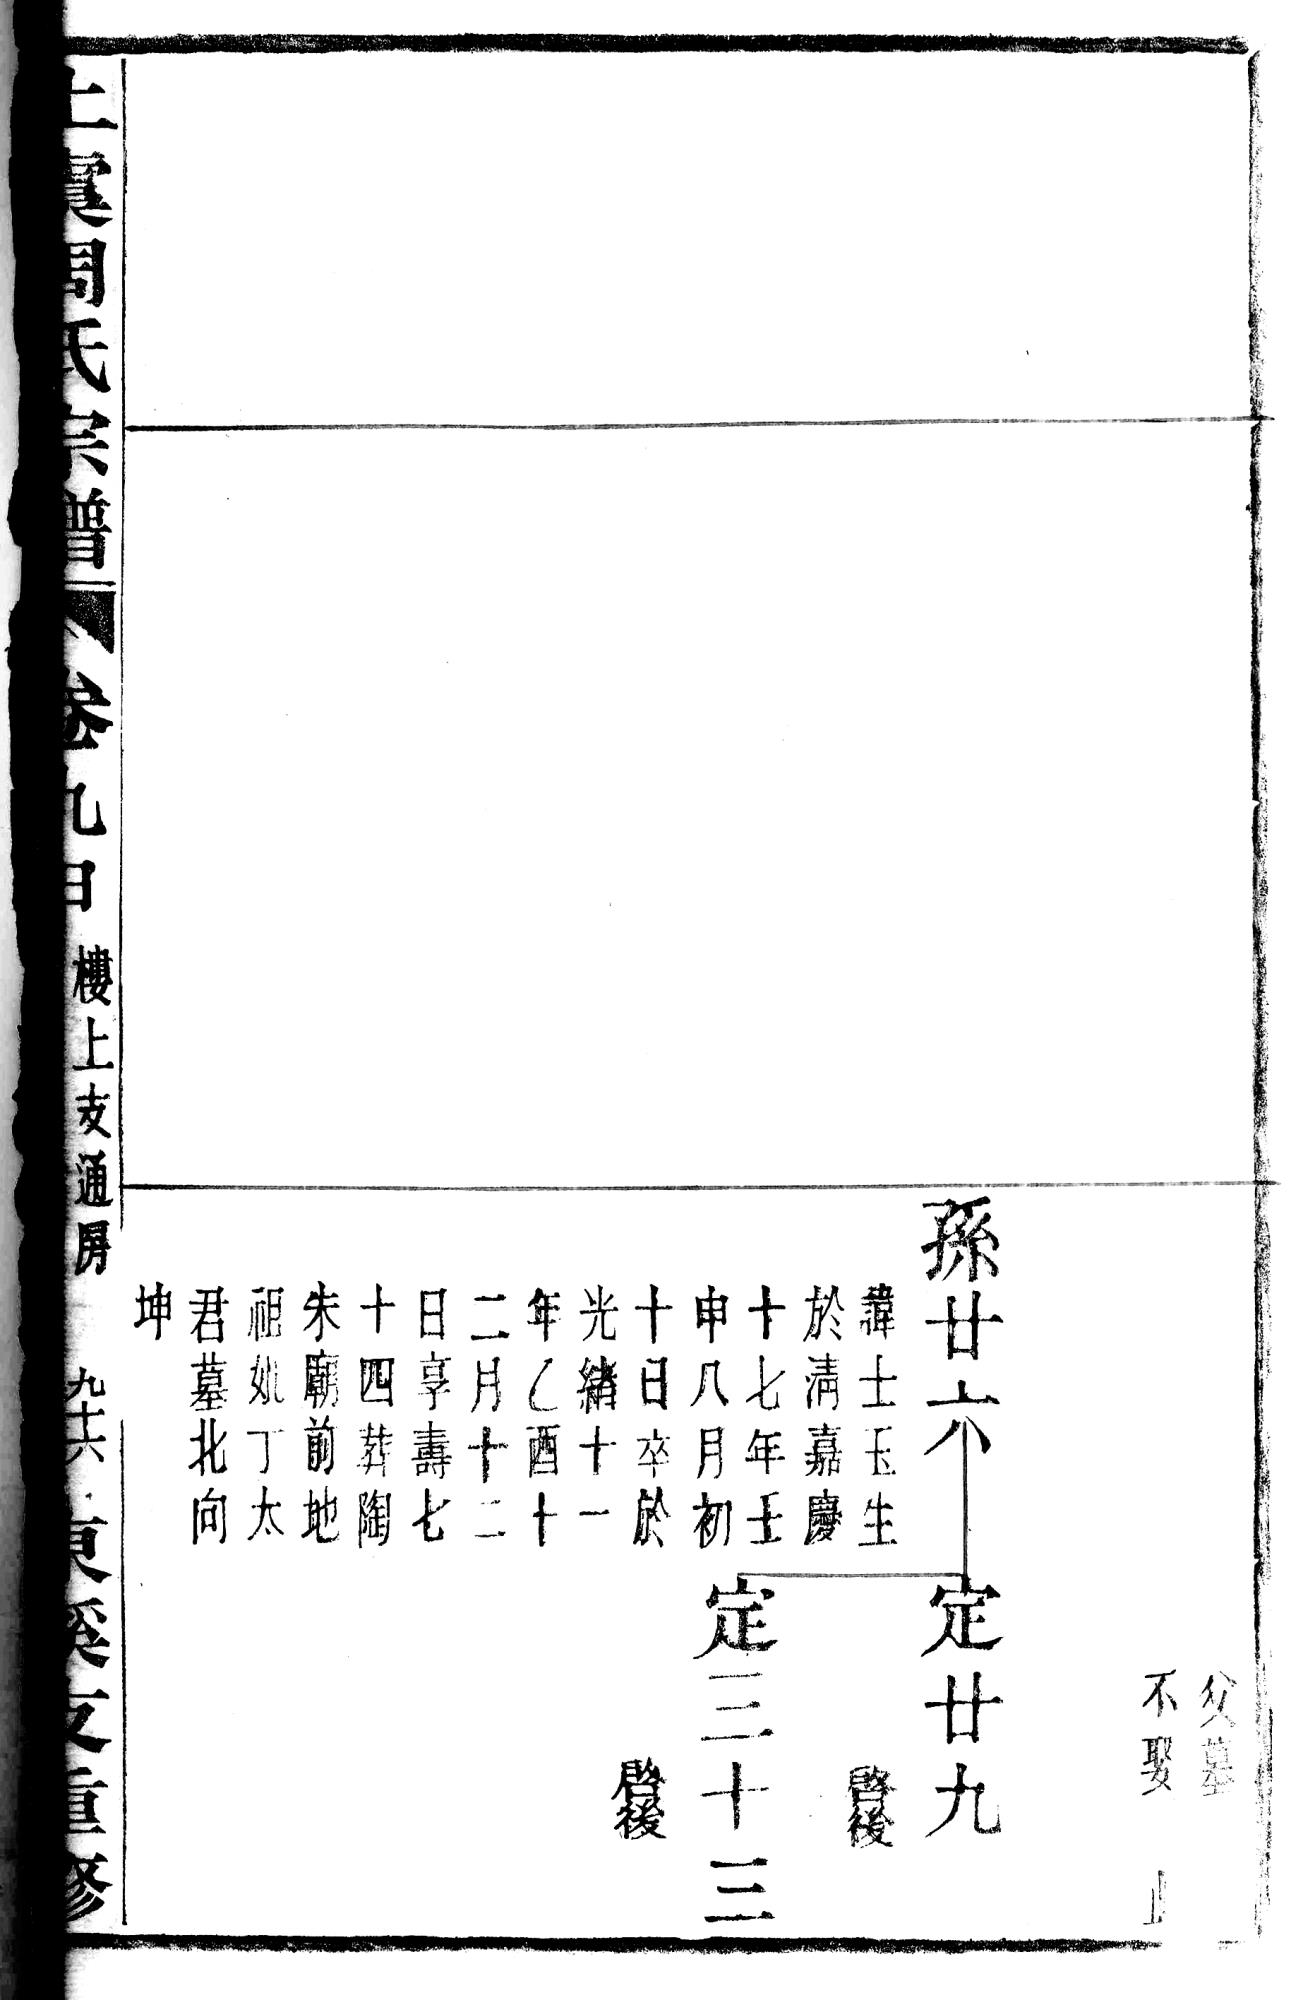 父墓
不娶 止
孫廿六
定廿九
諱士玉生
於淸嘉慶
十七年壬
申八月初
十日卒於
光緒十一
年乙酉十
二月十二
日享壽七
十四葬陶
朱廟前地
祖妣丁太
君墓北向
坤
啓後
定三十三
啓後
上虞周氏宗譜
卷九甲
樓上支通房
九十六
東溪支重修